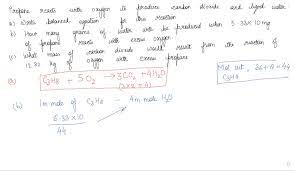 Propane reacts with oxygen to produce carbon dioxide and liquid water
a) Write balanced equation for this reaction
b) How many grams of water will be produced when 5.33×10 mg
of propane reacts with excess oxygen
c) What mass of carbon dioxide would result from the reaction of
kg of oxygen with excess propane
Mol wt, 36+8=44
C3H8
(a) C3H8 + 5O2 → 3CO2 + 4H2O
(b) 1 m mole of C3H8 - 4 m mol H2O
5.33×10
44